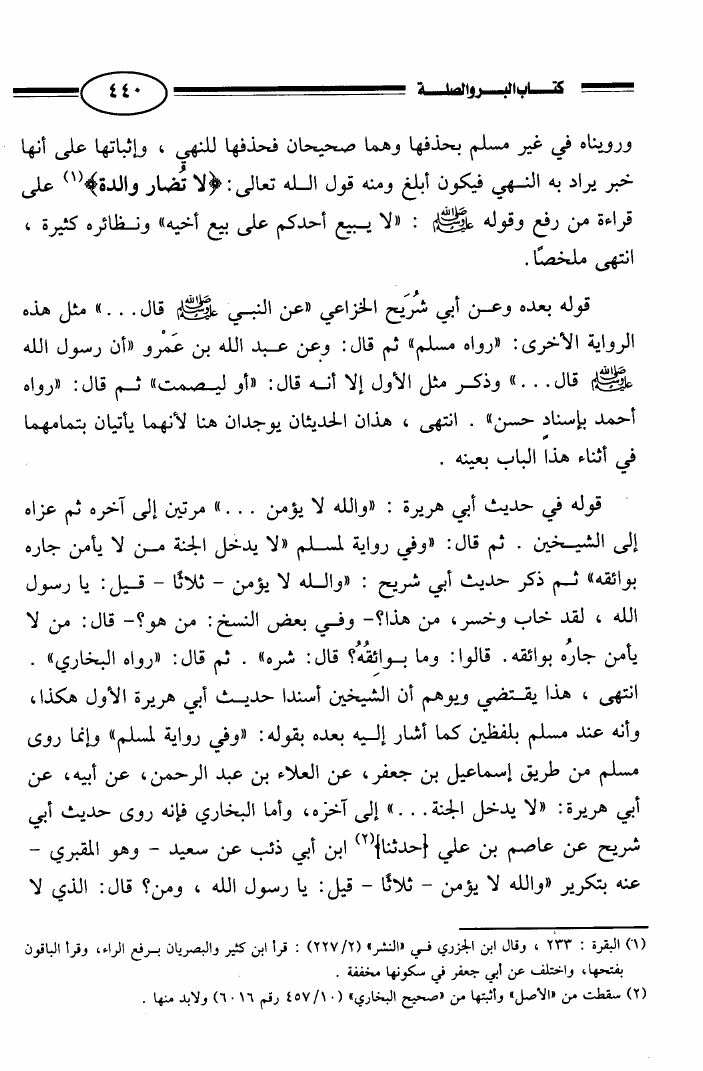 كتاب البر والصلة
٤٤٠
ورويناه في غير مسلم بحذفها وهما صحيحان فحذفها للنهي ، وإثباتها على أنها
خبر يراد به النهي فيكون أبلغ ومنه قول الله تعالى: ﴿لا تُضار والدة﴾(١) على
قراءة من رفع وقوله ﷺ : «لا يبيع أحدكم على بيع أخيه» ونظائره كثيرة ،
انتهى ملخصًا.
قوله بعده وعن أبي شُرَيح الخزاعي «عن النبي ﷺ قال...» مثل هذه
الرواية الأخرى: «رواه مسلم» ثم قال: وعن عبد الله بن عَمْرو «أن رسول الله
ﷺ قال...» وذكر مثل الأول إلا أنه قال: «أو ليصمت» ثم قال: «رواه
أحمد بإسنادٍ حسن» . انتهى ، هذان الحديثان يوجدان هنا لأنهما يأتيان بتمامهما
في أثناء هذا الباب بعينه .
قوله في حديث أبي هريرة : «والله لا يؤمن ...» مرتين إلى آخره ثم عزاه
إلى الشيخين . ثم قال: «وفي رواية لمسلم «لا يدخل الجنة من لا يأمن جاره
بوائقه» ثم ذكر حديث أبي شريح : «والله لا يؤمن - ثلاثًا - قيل: يا رسول
الله ، لقد خاب وخسر، من هذا؟- وفي بعض النسخ: من هو؟- قال: من لا
يأمن جارُه بوائقه. قالوا: وما بوائِقُهُ؟ قال: شره» . ثم قال: «رواه البخاري» .
انتهى ، هذا يقتضي ويوهم أن الشيخين أسندا حديث أبي هريرة الأول هكذا،
وأنه عند مسلم بلفظين كما أشار إليه بعده بقوله: «وفي رواية لمسلم» وإنما روى
مسلم من طريق إسماعيل بن جعفر، عن العلاء بن عبد الرحمن، عن أبيه، عن
أبي هريرة: «لا يدخل الجنة...» إلى آخره، وأما البخاري فإنه روى حديث أبي
شريح عن عاصم بن علي {حدثنا}(٢) ابن أبي ذئب عن سعيد - وهو المقبري -
عنه بتكرير «والله لا يؤمن - ثلاثًا - قيل: يا رسول الله ، ومن؟ قال: الذي لا
(١) البقرة : ٢٣٣ ، وقال ابن الجزري في «النشر» (٢٢٧/٢) : قرأ ابن كثير والبصريان برفع الراء، وقرأ الباقون
بفتحها، واختلف عن أبي جعفر في سكونها مخففة .
(٢) سقطت من «الأصل» وأثبتها من «صحيح البخاري» (٤٥٧/١٠ رقم ٦٠١٦) ولابد منها .